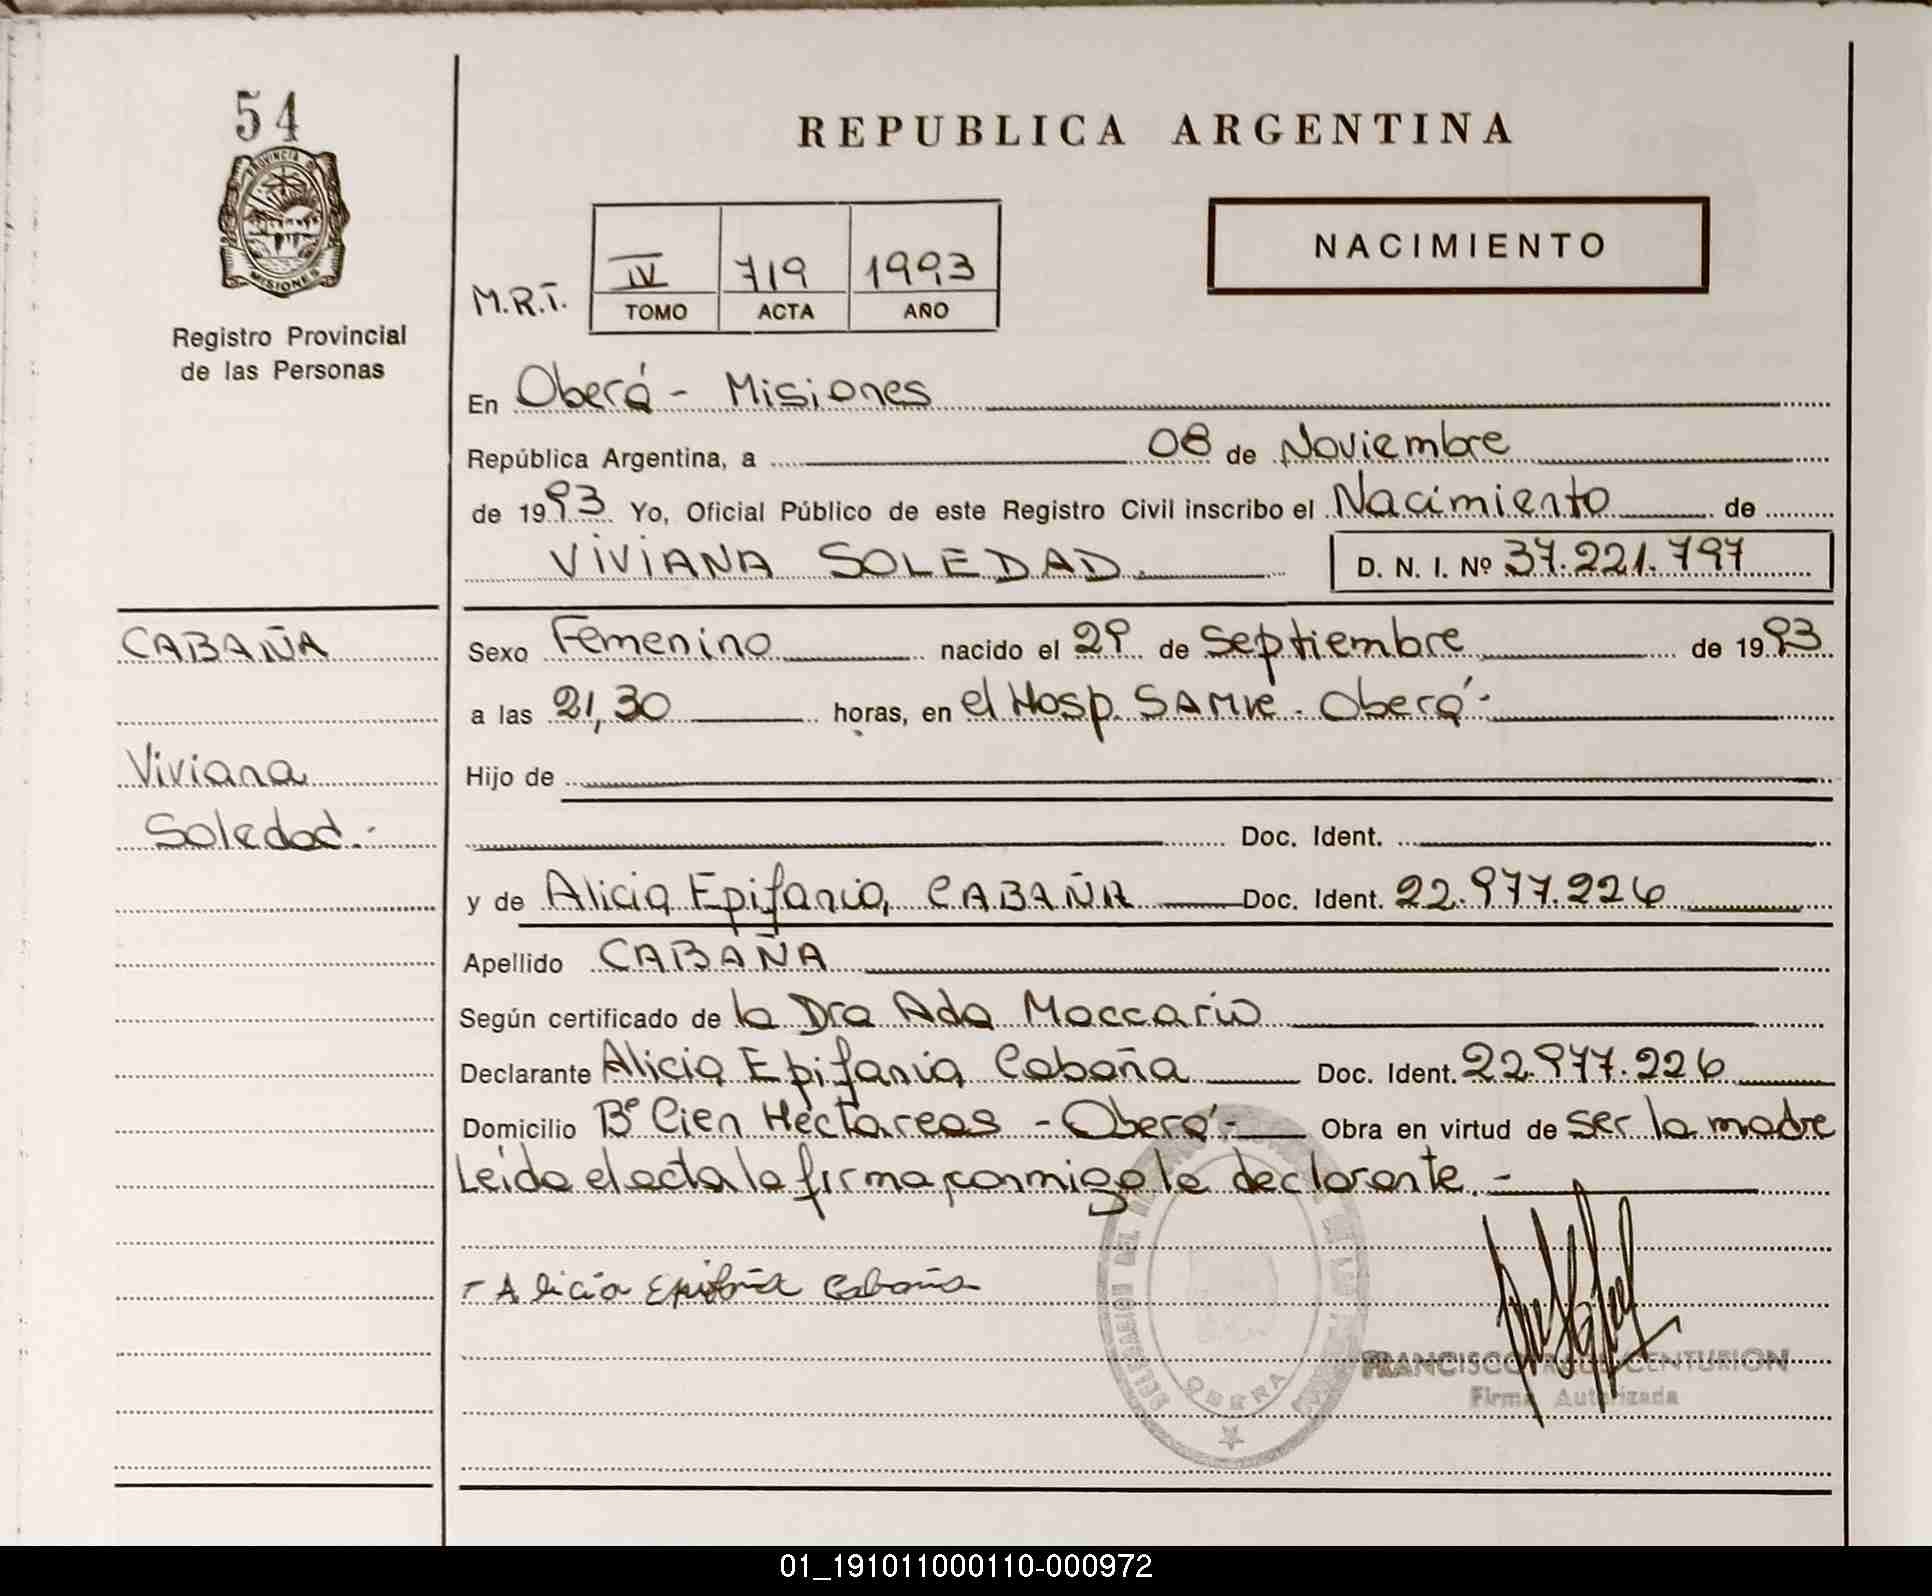 54
PROVINCIA DE
MISIONES
Registro Provincial
de las Personas
CABAÑA
Viviana
Soledad.-
REPUBLICA ARGENTINA
NACIMIENTO
M.R.T.
IV 719 1993
TOMO ACTA AÑO
En Oberá - Misiones
República Argentina, a 08 de Noviembre
de 1993 Yo, Oficial Público de este Registro Civil inscribo el Nacimiento de
VIVIANA SOLEDAD. D. N. I. Nº 37.221.797
Sexo Femenino nacido el 29 de Septiembre de 1993
a las 21,30 horas, en el Hosp. SAMIC. Oberá.-
Hijo de
Doc. Ident.
y de Alicia Epifania, CABAÑA Doc. Ident. 22.977.226
Apellido CABAÑA
Según certificado de la Dra Ada Maccario
Declarante Alicia Epifania Cabaña Doc. Ident. 22.977.226
Domicilio Bº Cien Hectareas - Oberá.- Obra en virtud de ser la madre
Leída el acta la firma conmigo la declarante.-
Alicia Epifania Cabaña
DEL
OBERA
FRANCISCO CENTURION
Firma Autorizada
01_191011000110-000972